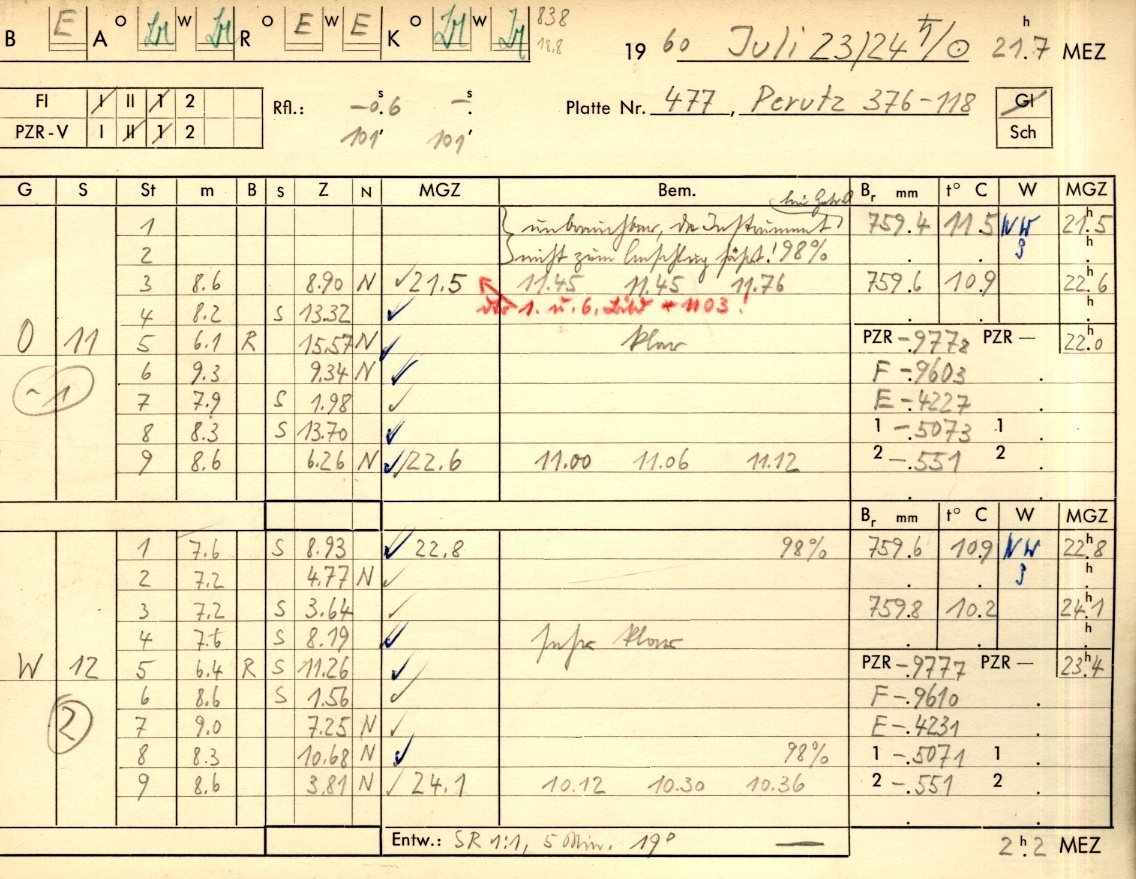 B E A O W R O E W E K O W 838
18.8
19 60 Juli 23/24 ♄/☉ 21.7 h MEZ
FI I II 1 2 Rfl.: -0.6 s - s. Platte Nr. 477, Perutz 376-118 Gl
PZR-V I II 1 2 101' 101' Sch
G S St m B S Z N MGZ Bem. Br mm t° C W MGZ
1 unbrauchbar, da Instrument 759.4 11.5 NW 21.5 h
2 nicht zum Umschlag fährt! 98% 3 . . h
3 8.6 8.90 N ✓ 21.5 11.45 11.45 11.76 759.6 10.9 22.6 h
4 8.2 S 13.32 ✓ 1. u. 6. 1103! . . h
O 11 5 6.1 R 15.57 N ✓ klar PZR -.9778 PZR - 22.0 h
~1 6 9.3 9.34 N ✓ F -.9603 .
7 7.9 S 1.98 ✓ E -.4227 .
8 8.3 S 13.70 ✓ 1 -.5073 1 .
9 8.6 6.26 N ✓ 22.6 11.00 11.06 11.12 2 -.551 2 .
Br mm t° C W MGZ
1 7.6 S 8.93 ✓ 22.8 98% 759.6 10.9 NW 22.8 h
2 7.2 4.77 N ✓ 3 . . h
3 7.2 S 3.64 ✓ 759.8 10.2 24.1 h
4 7.5 S 8.19 ✓ sehr klar . . h
W 12 5 6.4 R S 11.26 ✓ PZR -.9777 PZR - 23.4 h
2 6 8.6 S 1.56 ✓ F -.9610 .
7 9.0 7.25 N ✓ E -.4231 .
8 8.3 10.68 N ✓ 98% 1 -.5071 1 .
9 8.6 3.81 N ✓ 24.1 10.12 10.30 10.36 2 -.551 2 .
Entw.: SR 1:1, 5 Min. 19° — 2.2 h MEZ